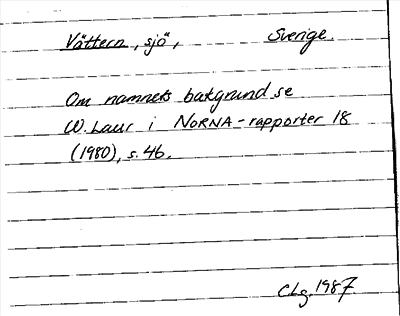 Vättern, sjö, Sverige.
Om namnets bakgrund se
W. Laur i NORNA-rapporter 18
(1980), s. 46.
CLg. 1987